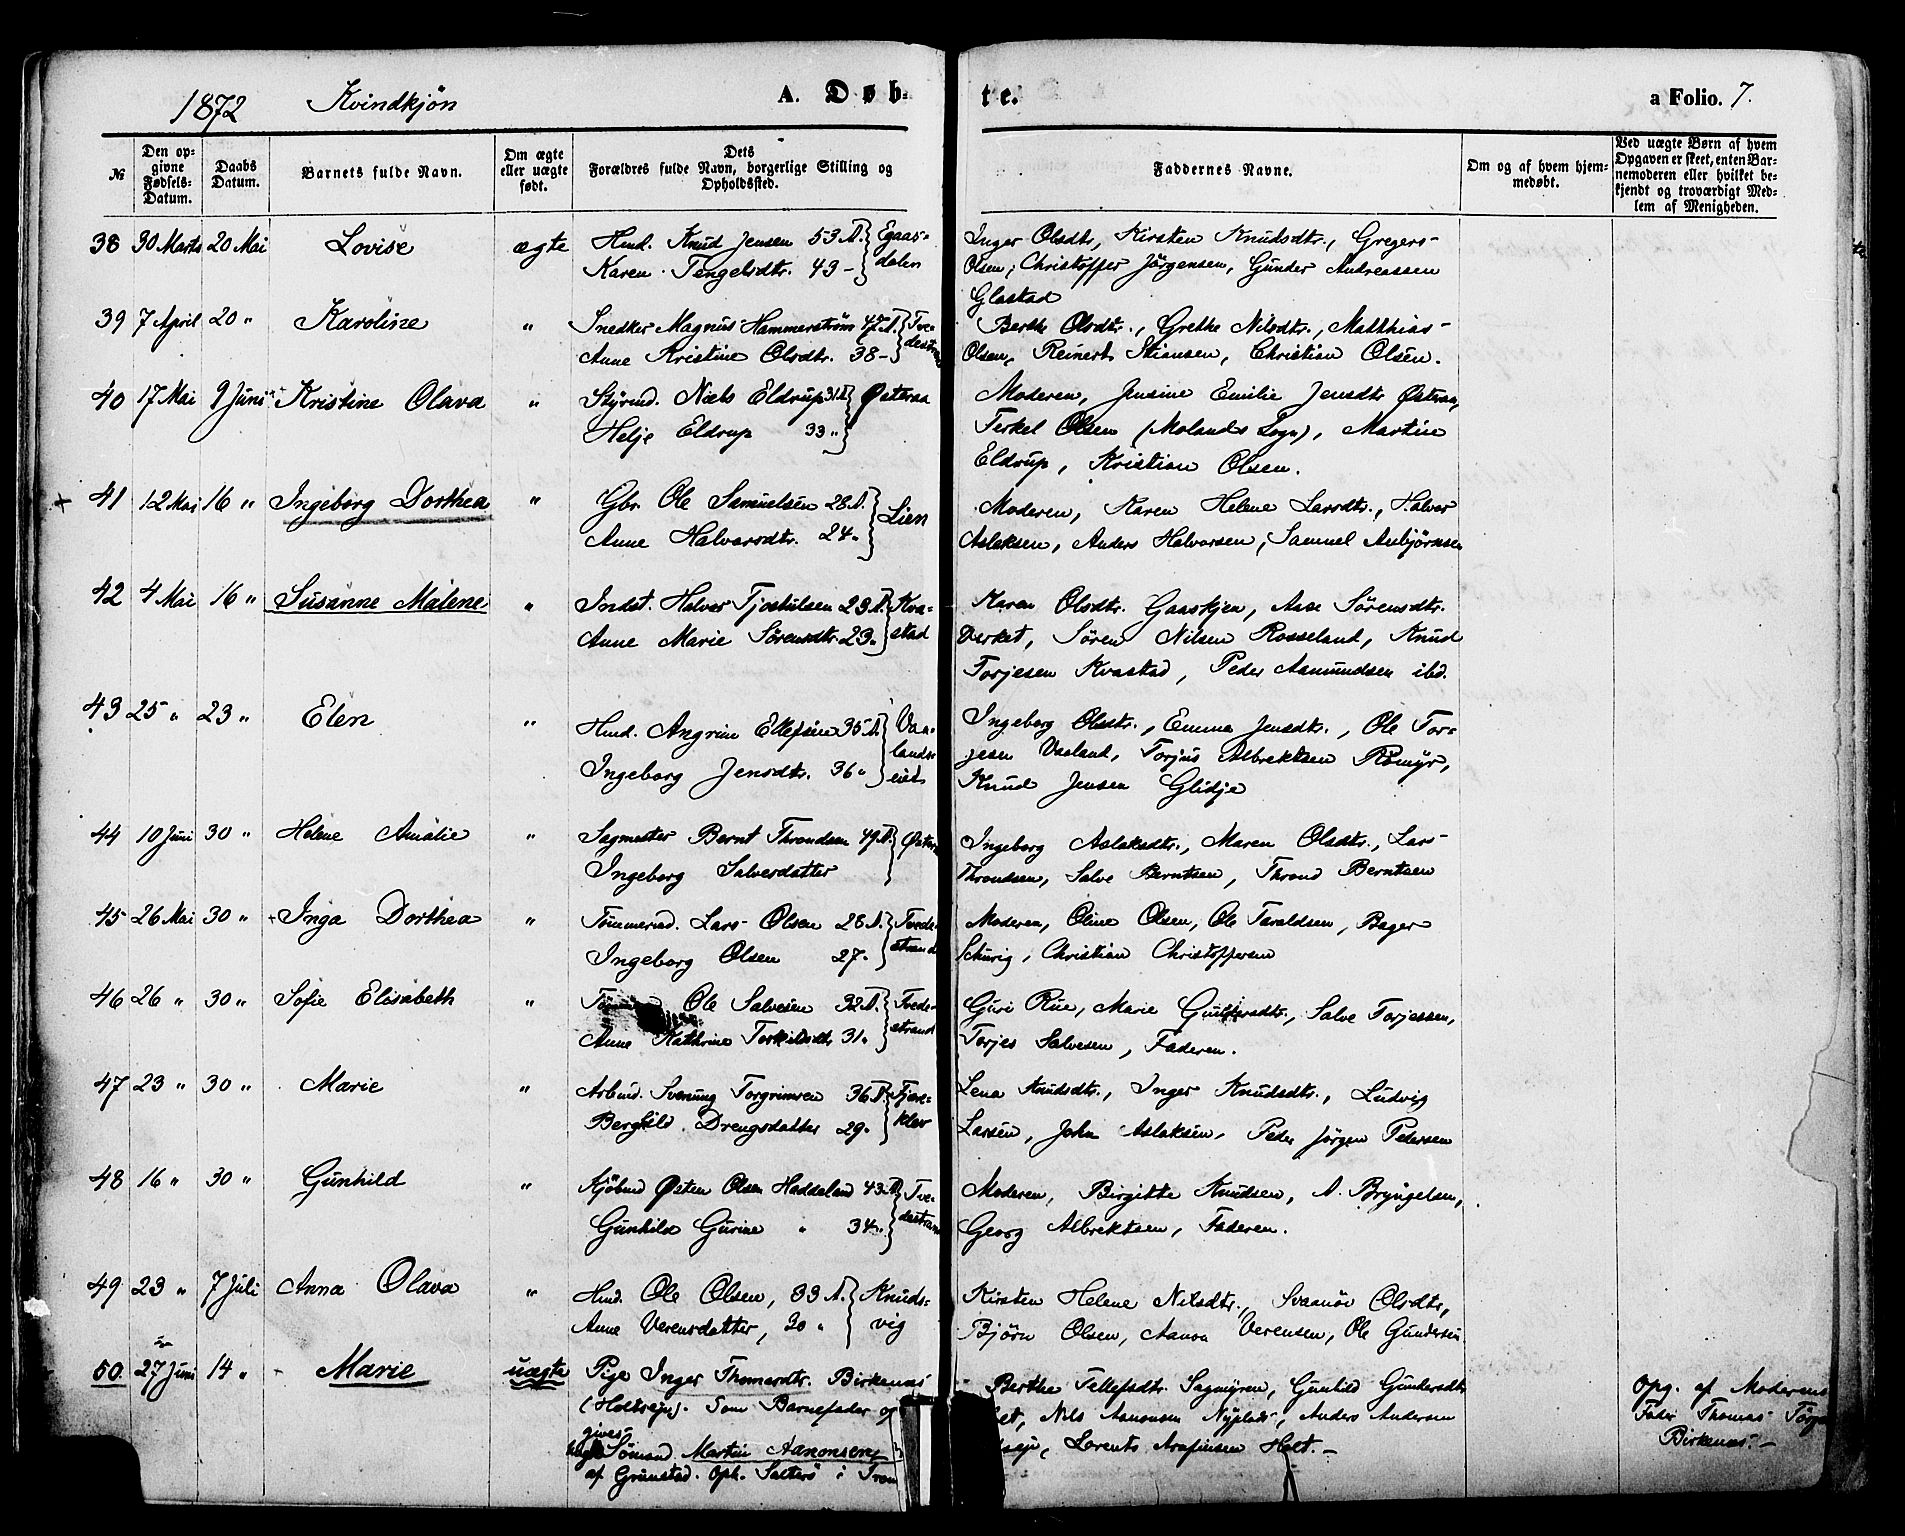 1872 Kvindkjøn A. Døb-
te. a Folio. 7.
№ Den op-givne Fødsels-Datum. Daabs Datum. Barnets fulde Navn. Om ægte eller uægte født. Dets Forældres fulde Navn, borgerlige Stilling og Opholdssted. Faddernes Navne. Om og af hvem hjem-medøbt. Ved uægte Børn af hvem Opgaven er skeet, enten Bar-nemoderen eller hvilket be-kjendt og troværdigt Med-lem af Menigheden.
38 30 Marts 20 Mai Lovise ægte Hmd. Knud Jensen 53 A. Egaas-
Karen Tengelsdtr. 43 - dalen
Inger Olsdtr, Kirsten Knudsdtr., Gregers
Olsen, Christoffer Jörgensen, Gunder Andreassen
Glastad
39 7 April 20 " Karoline " Snedker Magnus Hammerström 47 A. Tve-
Anne Kristine Olsdtr. 38 -
Berthe Olsdtr., Grethe Nilsdtr., Matthias
Olsen, Reinert Stiansen, Christian Olsen.
40 17 Mai 9 Juni Kristine Olava " Styrmd. Niels Eldrup 31 A Østeraa
Helje Eldrup 33 "
Moderen, Jensine Emilie Jensdtr Østeraa,
Terkel Olsen (Molands Sogn), Martin
Eldrup, Kristian Olsen.
+ 41 12 Mai 16 " Ingeborg Dorthea " Gbr. Ole Samuelsen 28 A. Lien
Anne Halvorsdtr. 24 "
Moderen, Karen Helene Larsdtr., Halvor
Aslaksen, Anders Halvorsen, Samuel Anbjørnsen
42 4 Mai 16 " Susanne Malene " Indst. Halvor Tjostulsen 23 A. Kva-
Anne Marie Sörensdtr 23 " stad
Karen Olsdtr. Gaaskjen, Aase Sörensdtr.
Verket, Sören Nilsen Rosseland, Knud
Torjesen Kvastad, Peder Asmundsen ibd.
43 25 " 23 " Elen " Hmd. Angrim Ellefsen 35 A. Vaa-
Ingeborg Jensdtr. 36 " lands-
eiet
Ingeborg Olsdtr., Emma Jensdtr., Ole Tor-
jesen Vaaland, Torjus Albrektsen Römyr,
Knud Jensen Glidje
44 10 Juni 30 " Helene Amalie " Sagmester Bernt Throndsen 49 A.
Ingeborg Salvesdatter
Ingeborg Aslaksdtr., Maren Olsdtr., Lars
Throndsen, Salve Berntsen, Thrond Berntsen
45 26 Mai 30 " Inga Dorthea " Tömmermd. Lars Olsen 28 A. Tvede-
Ingeborg Olsen 27 " strand
Moderen, Oline Olsen, Ole Taraldsen, Bager
Schurig, Christian Christoffersen
46 26 " 30 " Sofie Elisabeth " Ole Salvesen 32 A. Tvede-
Anne Kathrine Torkildsdtr 31 " strand
Guri Rue, Marie Gundersdtr., Salve Torjessen,
Torjes Salvesen, Faderen.
47 23 " 30 " Marie " Arbmd. Svenung Torgrimsen 36 A. Fjære-
Berghild Drengsdatter 29 " klev
Lena Knudsdtr., Inger Knudsdtr., Ludvig
Larsen, John Aslaksen, Peder Jørgen Pedersen
48 16 " 30 " Gunhild " Kjöbmd Østen Olsen Haddeland 43 A. Tve-
Gunhild Gurine " 34 " destrand
Moderen, Birgitte Knudsen, A. Bryngelsen,
Georg Albrektsen, Faderen.
49 23 " 7 Juli Anna Olava " Hmd. Ole Olsen, 33 A. Knuds-
Anne Verensdatter, 30 " vig
Kirsten Helene Nilsdtr., Svaanöv Olsdtr,
Bjørn Olsen, Aanon Verensen, Ole Gundersen
50. 27 Juni 14 " Marie uægte Pige Inger Thomasdtr. Birkenæs
(Holtsogn). Som Barnefader op
gives
Sömand Martin Aanonsen
af Grimstad. Oph. Salterö i Trom
Berthe Tellefsdtr. Sagmyren, Gunhild Gundersdtr
Nils Aanonsen Nyplads, Anders Andersen
Lorents Arafinsen Holt. -
Opg. af Moderens
Fader Thomas
Birkenæs. -